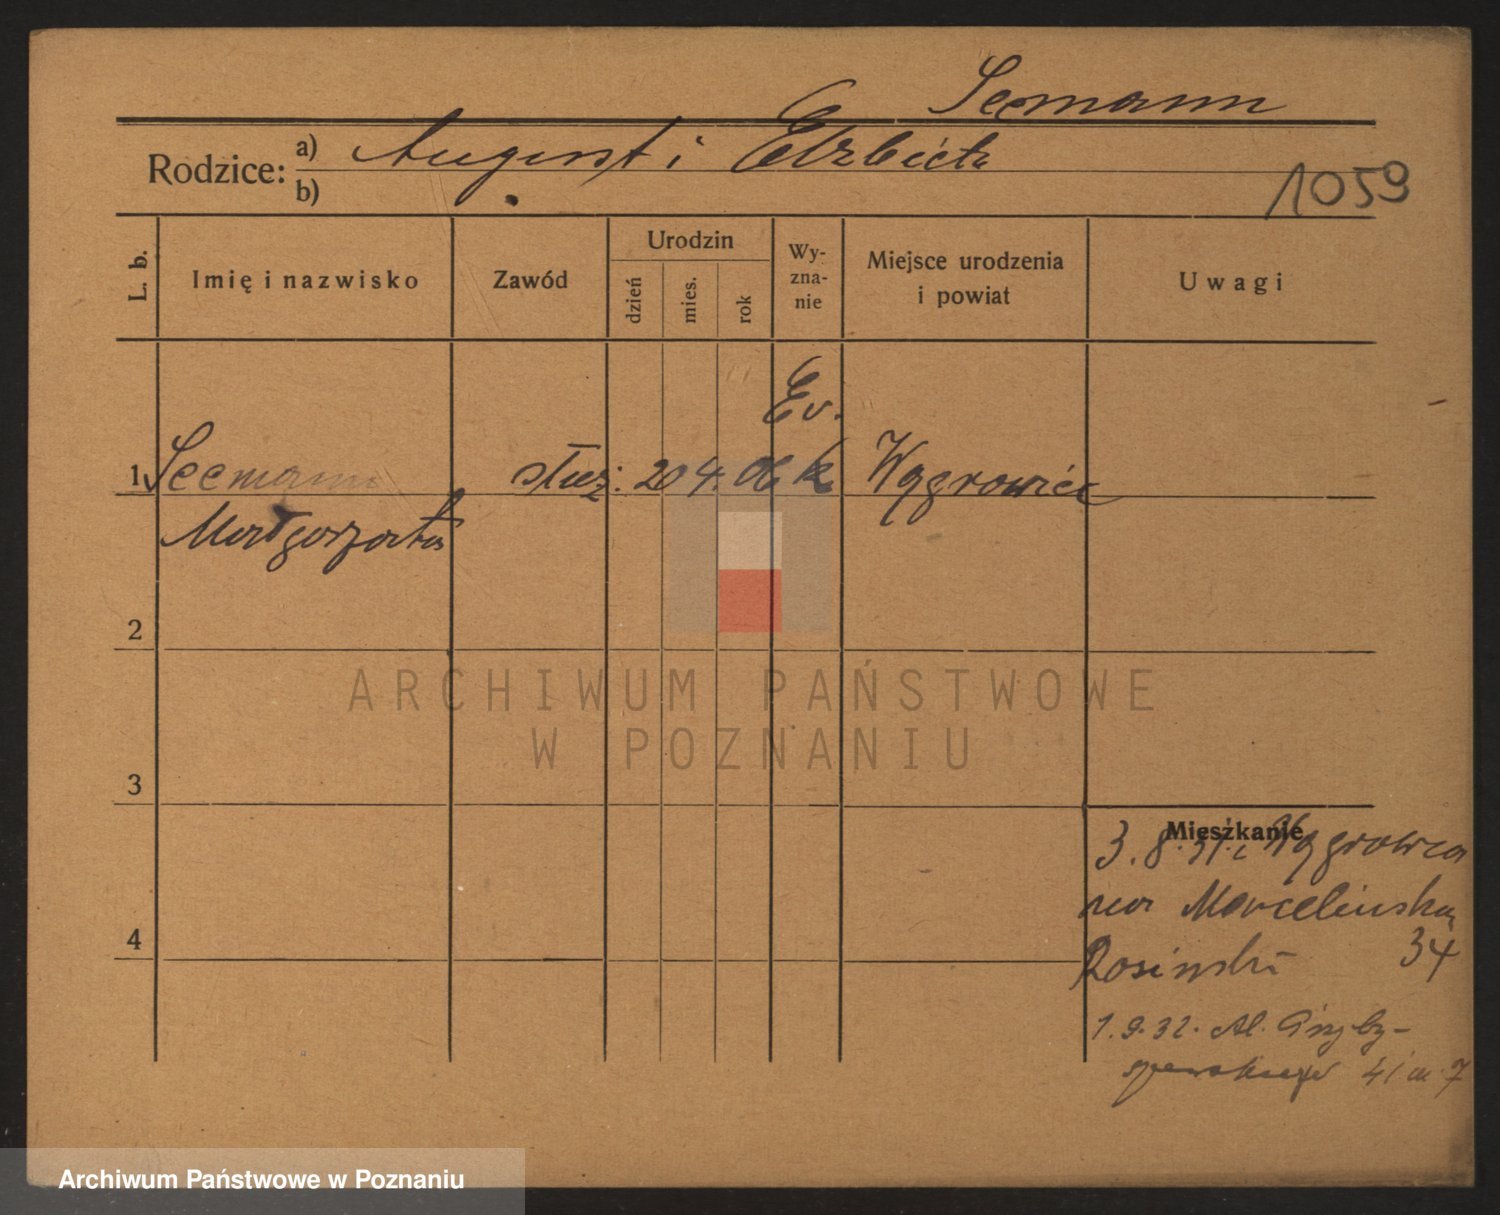 Seemann
Rodzice: a) August i Elżbieta
b)
1059
L. b.
Imię i nazwisko
Zawód
Urodzin
dzień
mies.
rok
Wy-
zna-
nie
Miejsce urodzenia
i powiat
Uwagi
Ev.
1 Seemann służ. 20 4. 06 k Wągrowiec
Małgorzata
2
3
4
Mieszkanie
3.8.31. z Wągrowca
na Marcelińską
Rosiński 34
1.9.32. Al. Przyby-
szewskiego 41 m 7
ARCHIWUM PAŃSTWOWE
W POZNANIU
Archiwum Państwowe w Poznaniu